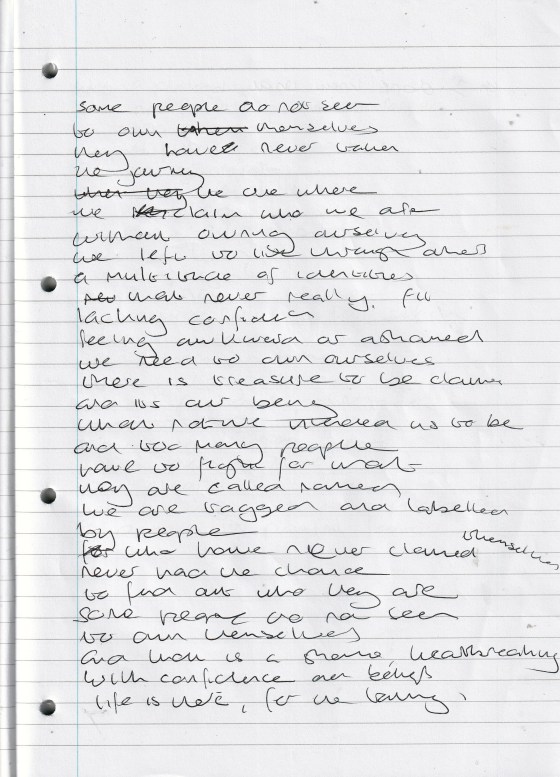 some people do not seem
to own themselves
they have never taken
the journey
we are where
we claim who we are
without owning ourselves
we left to live through others
a multitude of identities
that never really, fit
lacking confidence
feeling awkward or ashamed
we need to own ourselves
there is treasure to be claimed
and its our being
what nature intended us to be
and too many people
have to fight for what
they are called named
we are tagged and labelled
by people
who have never claimed themselves
never had the chance
to find out who they are
some people do not seem
to own themselves
and that is a shame heartbreaking
with confidence our beings
life is here, for the being,